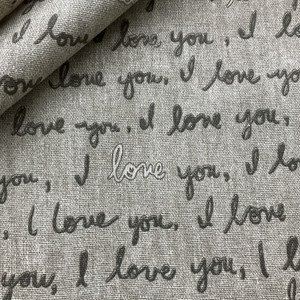 I love I love you, I
you love you, I love you
love you, I love you,
you, I love you, I lo
, I love you. I love
you, I love you, I l